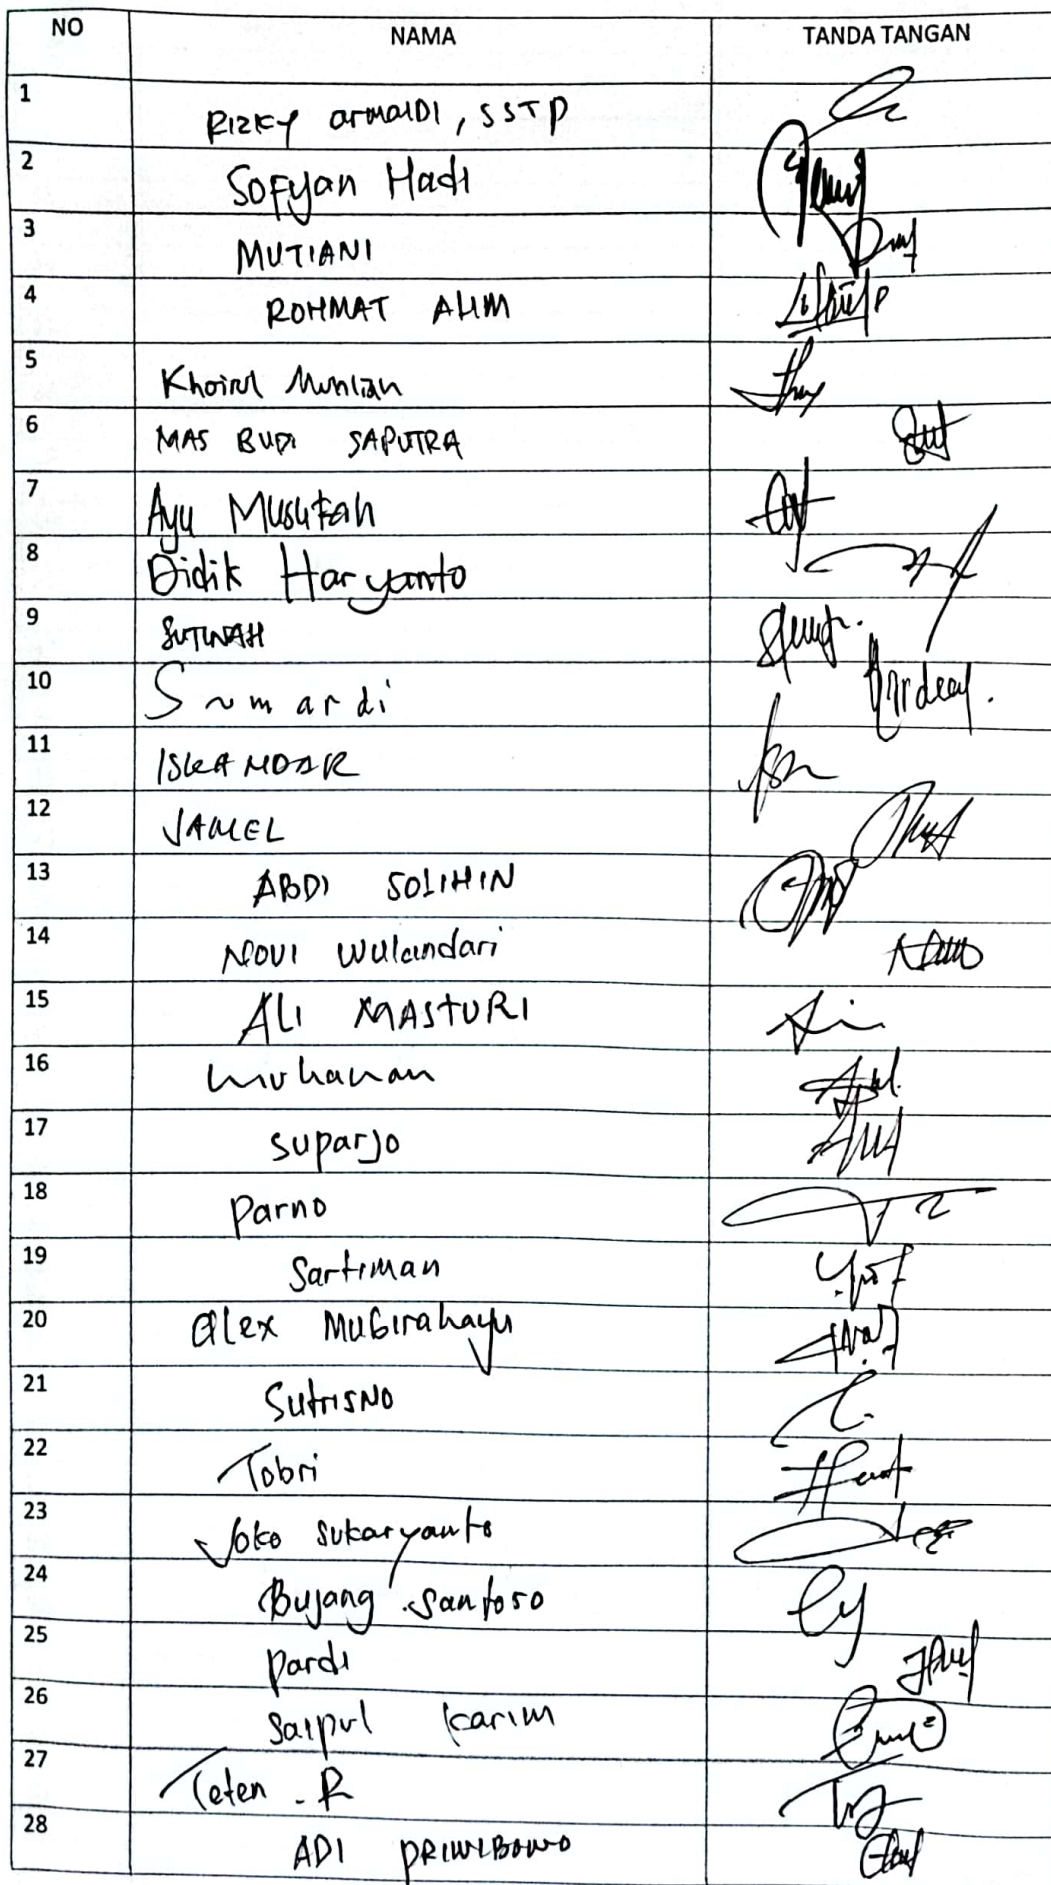 NO NAMA TANDA TANGAN
1 RIZKY ArmaIDI, SSTP
2 Sofyan Hadi
3 MUTIANI
4 ROHMAT ALIM
5 Khoirul
6 MAS BUDI SAPUTRA
7 Ayu
8 Didik Haryanto
9 SUTINAH
10 Sumardi
11 ISKANDAR
12 JAMEL
13 ABDI SOLIHIN
14 NOVI Wulandari
15 ALI MASTURI
16 Muhanan
17 Suparjo
18 Parno
19 Sartiman
20 Alex MuGirahayu
21 SutrisNo
22 Tobri
23 Joko Sukaryanto
24 Bujang Santoso
25 Pardi
26 Saipul Karim
27 Teten . R
28 ADI PRIWIBOWO